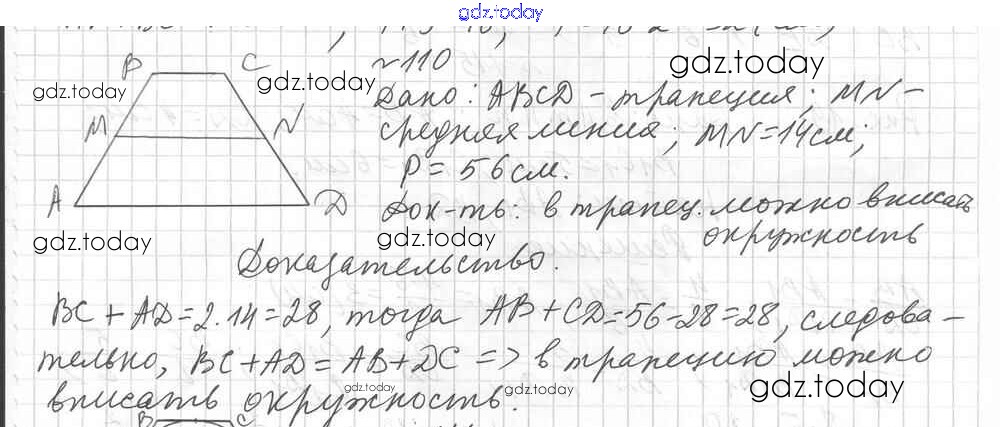 gdz.today
№110
B C
gdz.today
gdz.today
gdz.today
Дано: ABCD - трапеция; MN -
M N
средняя линия; MN = 14 см;
P = 56 см.
A D
Док-ть: в трапец. можно вписать
окружность
gdz.today
gdz.today
Доказательство.
BC + AD = 2·14 = 28, тогда AB + CD = 56 - 28 = 28, следова -
тельно, BC + AD = AB + DC => в трапецию можно
gdz.today
gdz.today
gdz.today
вписать окружность.
B C